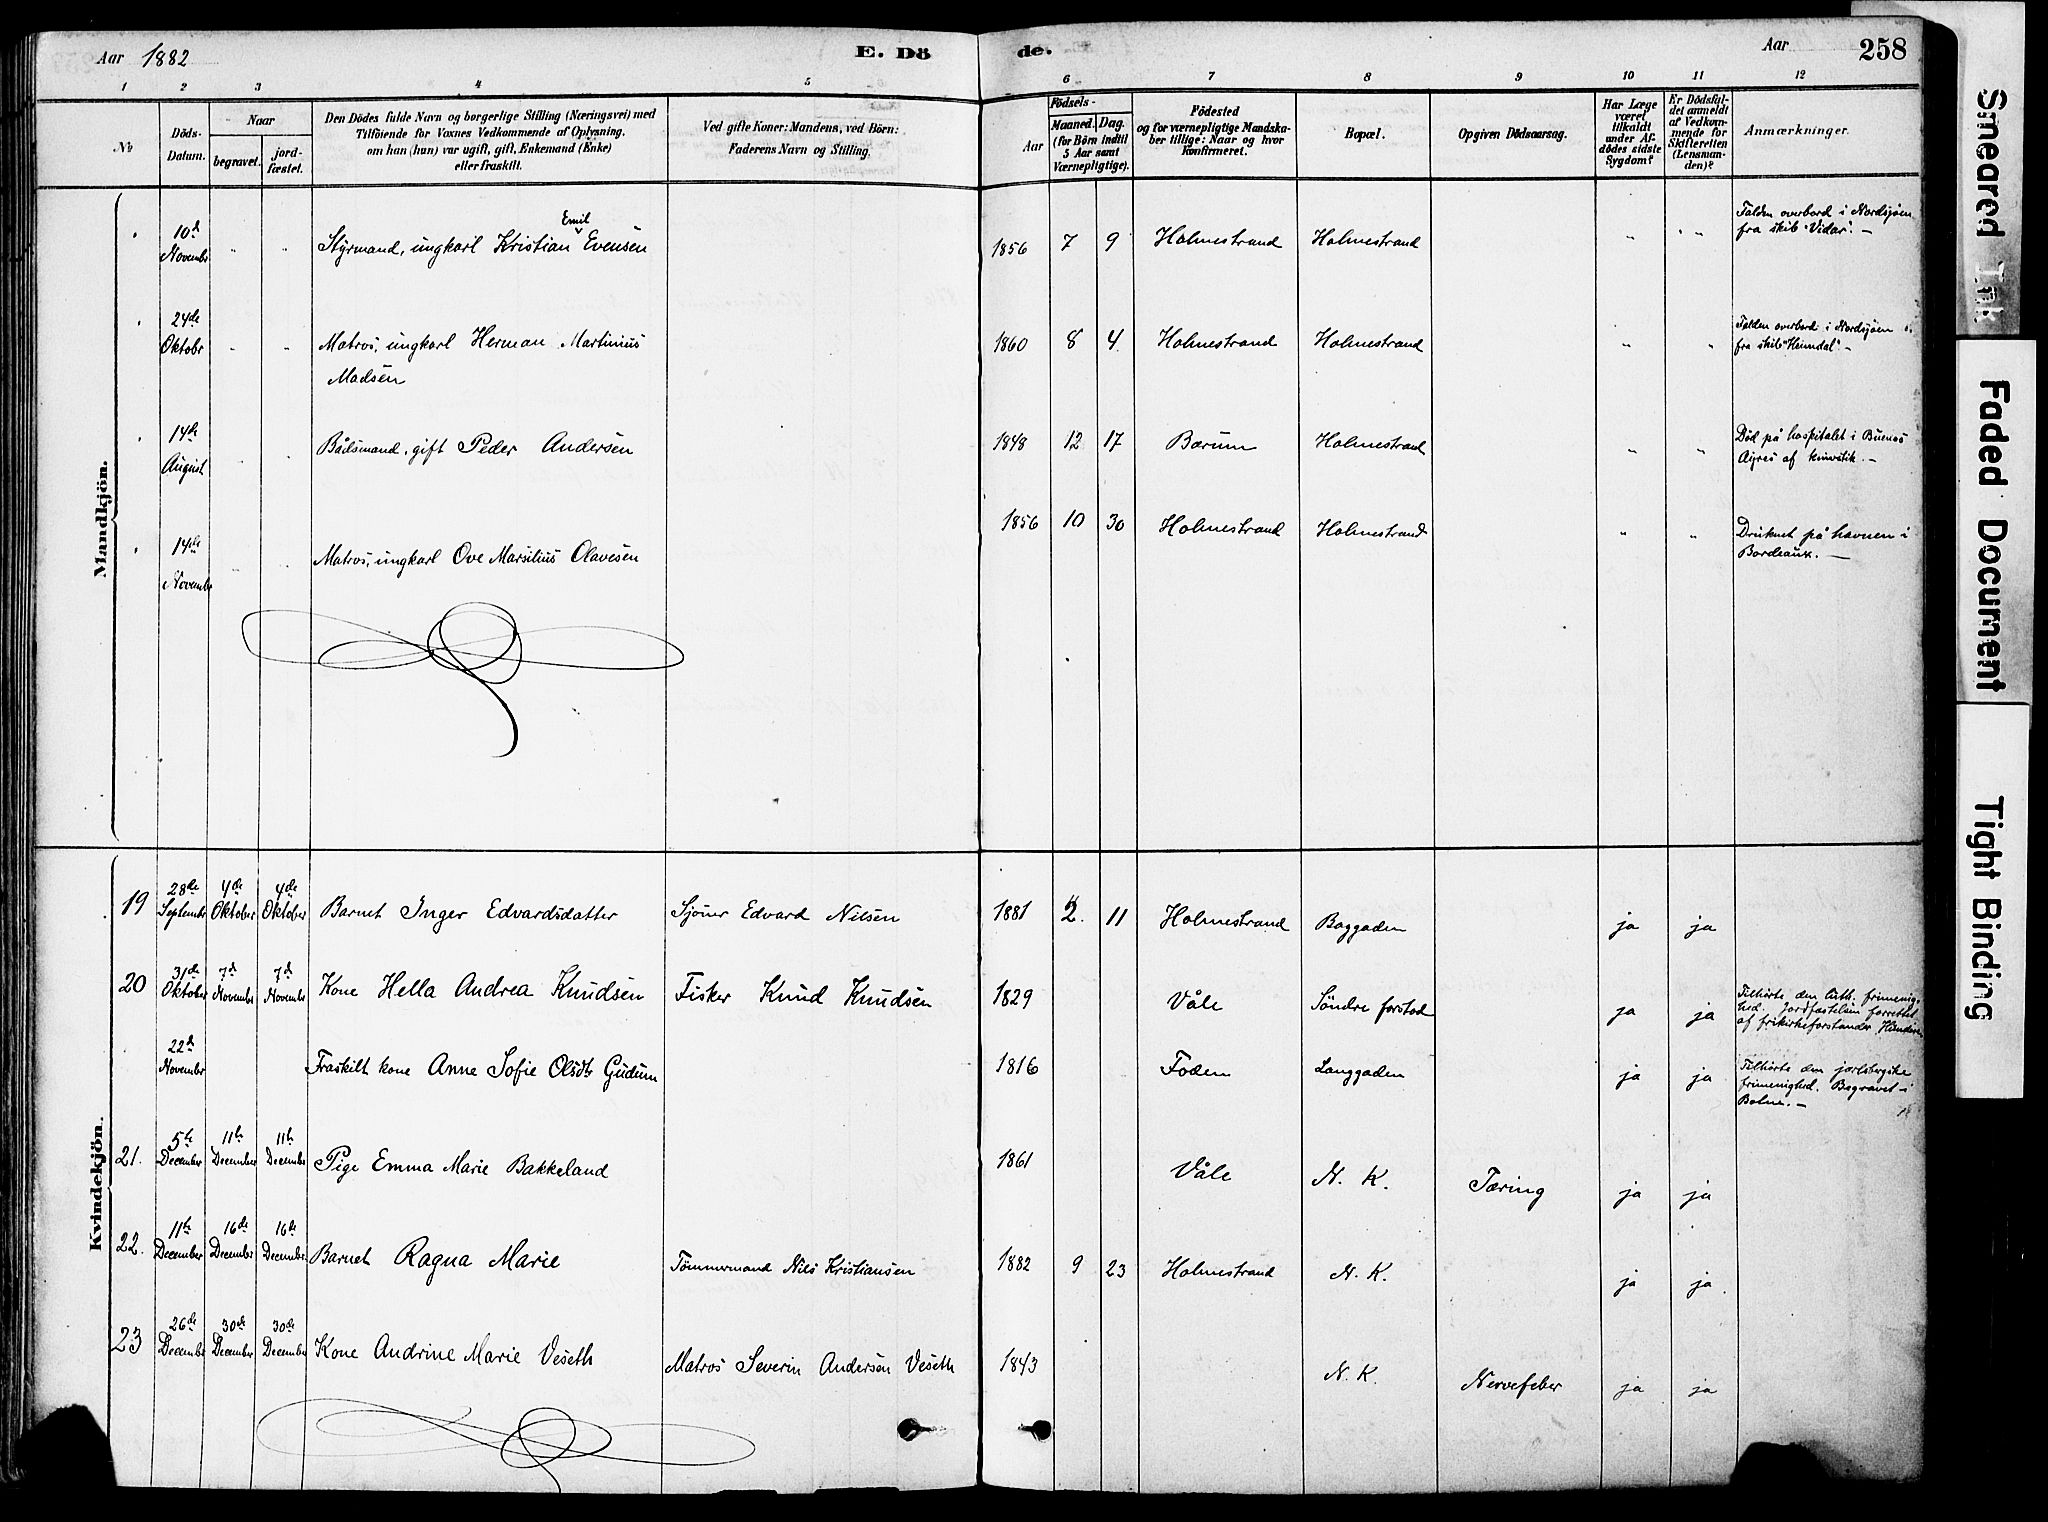 Aar 1882
E. Dö
de.
Aar
258
1 2 3 4 5 6 7 8 9 10 11 12
No
Döds-
Datum.
Naar
begravet.
jord-
fæstet.
Den Dödes fulde Navn og borgerlige Stilling (Næringsvei) med
Tilföiende for Voxnes Vedkommende af Oplysning,
om han (hun) var ugift, gift, Enkemand (Enke)
eller fraskilt.
Ved gifte Koner: Mandens, ved Börn:
Faderens Navn og Stilling.
Födsels-
Aar
Maaned. Dag.
(for Börn indtil
5 Aar samt
Værnepligtige).
Födested
og for værnepligtige Mandska-
ber tillige: Naar og hvor
konfirmeret.
Bopæl.
Opgiven Dödsaarsag.
Har Læge
været
tilkaldt
under Af-
dödes sidste
Sygdom?
Er Dödsfal-
det anmeldt
af Vedkom-
mende for
Skifteretten
(Lensman-
den)?
Anmærkninger.
Mandkjön.
10d Novembr " " Styrmand, ungkarl Kristian Emil Evensen 1856 7 9 Holmestrand Holmestrand " " Falden overbord i Nordsjøen
fra skib "Vidar". —
24de Oktobr " " Matros, ungkarl Herman Martinius 1860 8 4. Holmestrand Holmestrand " " Falden overbord i Nordsjøen
Madsen fra skib "Heimdal". —
14de August " " Bådsmand, gift Peder Andersen 1848 12 17 Bærum Holmestrand " " Død på hospitalet i Buenos
Ayres af knivstik. —
14de Novembr " " Matros, ungkarl Ove Marsilius Olavesen 1856 10 30 Holmestrand Holmestrand " " Druknet på havnen i
Bordeaux. —
Kvindekjön.
19 28de Septembr 4de Oktober 4de Oktober Barnet Inger Edvardsdatter Sjømr Edvard Nilsen 1881 2. 11 Holmestrand Baggaden ja ja
20 31de Oktober 7d Novembr 7d Novembr Kone Hella Andrea Knudsen Fisker Knud Knudsen 1829 Våle Søndre forstad ja ja Tilhørte den luth. frimenig-
hed. Jordfæstelsen forrettet
af frikirkeforstander
22d Novembr Fraskilt kone Anne Sofie Olsdtr Gudum 1816 Foden Langgaden ja ja Tilhørte den jarlsbergske
frimenighed. Begravet i
Botne. —
21. 5te December 11te December 11te December Pige Emma Marie Bakkeland 1861 Våle N. K. Tæring ja ja
22. 11te December 16de Decembr 16de December Barnet Ragna Marie Tømmermand Nils Kristiansen 1882 9 23 Holmestrand N. K. ja ja
23 26de Decembr 30de December 30de December Kone Andrine Marie Veseth Matros Severin Andersen Veseth 1843 N. K. Nervefeber ja ja
Smeared Ink
Faded Document
Tight Binding